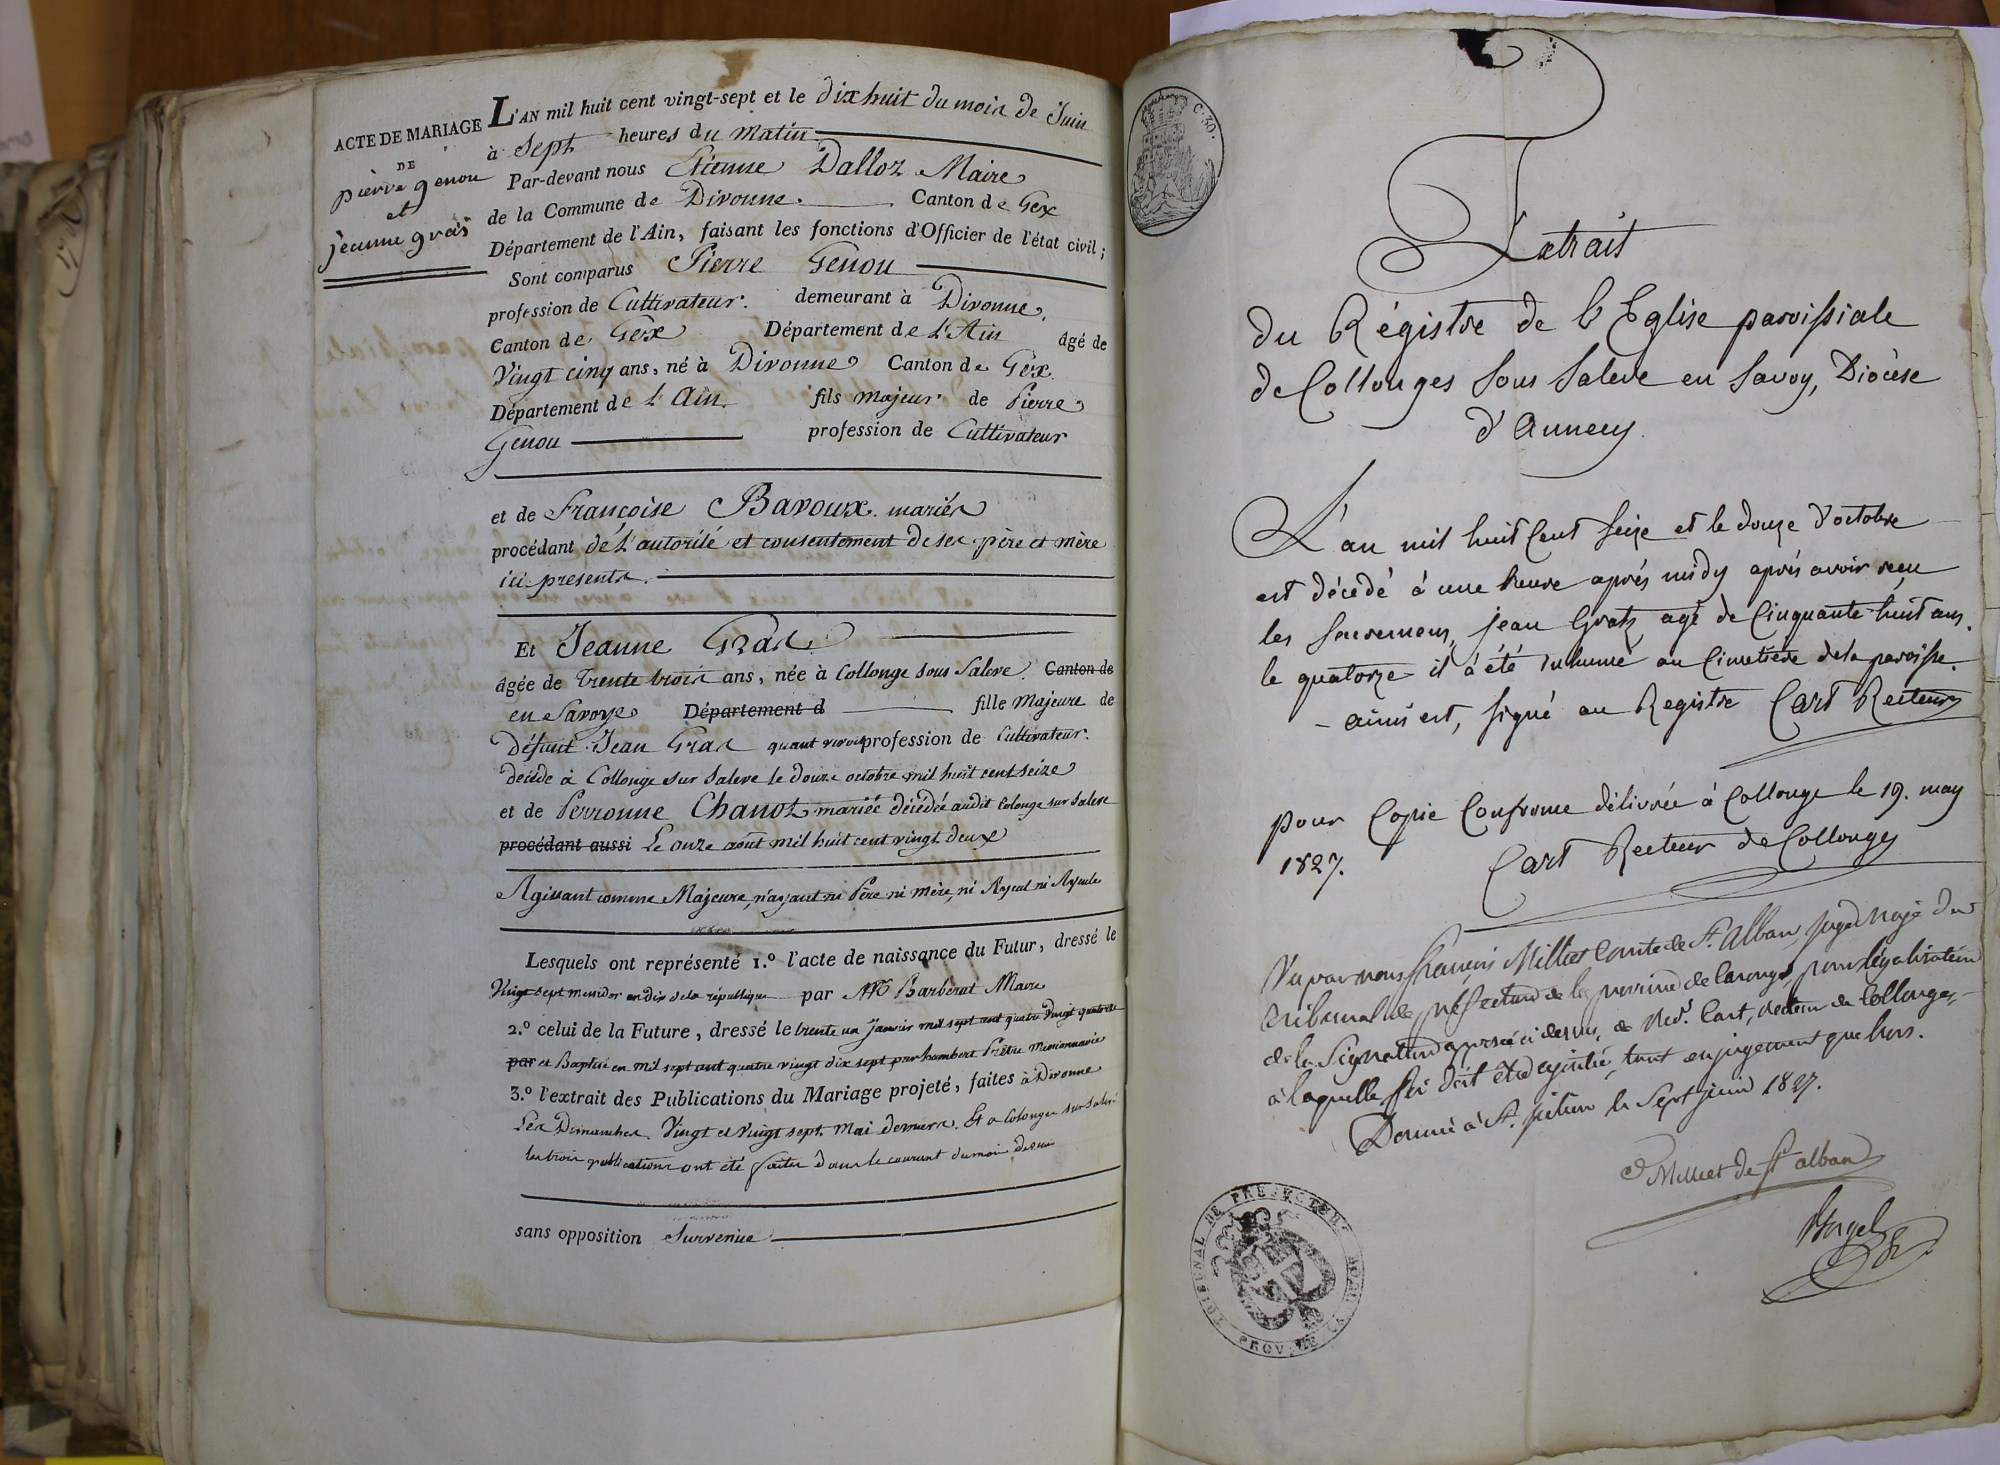 ACTE DE MARIAGE
DE
pierre genou
et
jeanne gras
L'AN mil huit cent vingt-sept et le dix huit du mois de Juin
à Sept heures du Matin
Par-devant nous Etienne Dalloz Maire
de la Commune de Divonne. Canton de Gex
Département de l'Ain, faisant les fonctions d'Officier de l'état civil;
Sont comparus Pierre Genou
profession de Cultivateur. demeurant à Divonne.
Canton de Gex Département de L'Ain âgé de
Vingt cinq ans, né à Divonne Canton de Gex.
Département de L'Ain. fils majeur de Pierre
Genou profession de Cultivateur
et de Françoise Bavoux. mariés
procédant de L'autorité et consentement de ses père et mère
ici presents.
Et Jeanne Gras
âgée de trente trois ans, née à Collonge sous Saleve. Canton de
en Savoye Département d fille Majeure de
défunt Jean Gras quant vivoit profession de Cultivateur.
décédé à Collonge sur Saleve le douze octobre mil huit cent seize
et de Perronne Chanot mariée décédée audit Colonge sur Saleve
procédant aussi Le onze août mil huit cent vingt deux
Agissant comme Majeure, n'ayant ni Père ni mère, ni Ayeul ni Ayeule
Lesquels ont représenté 1.º l'acte de naissance du Futur, dressé le
Vingt sept messidor an dix de la république par Barberat Maire
2.º celui de la Future, dressé le trente un janvier mil sept cent quatre vingt quatorze
par et Baptisé en mil sept cent quatre vingt dix sept par hambert Prêtre Missionnaire
3.º l'extrait des Publications du Mariage projeté, faites à Divonne
Les Dimanches. Vingt et Vingt sept. Mai derniers. Et a Colonges sur Saleve
les trois publications ont été faites dans le courant du mois de mai
sans opposition Survenue
C. 30.
Extrait
du Régistre de l'Eglise paroissiale
de Collonges sous Saleve en Savoy, Diocèse
d'Annecy.
L'an mil huit Cent seize et le douze d'octobre
est décédé à une heure après midy après avoir reçu
les sacremens, jean Gratz agé de Cinquante-huit ans.
le quatorze il a été inhumé au Cimetière de la paroisse.
- ainsi est, signé au Registre Cart Recteur
pour Copie Conforme délivrée à Collonge le 19. may
1827. Cart Recteur de Collonges
Vu par nous françois Milliet Comte de St. Alban, juge Maje du
Tribunal de préfecture de la province de Carouge, pour légalisation
de la Signature apposée ci dessus, de Red. Cart, recteur de Collonges,
à laquelle foi doit être ajoutée, tant en jugement que hors.
Donné à St. julien le Sept juin 1827.
Milliet de St alban
TRIBUNAL DE PREFECTURE
PROV. DE